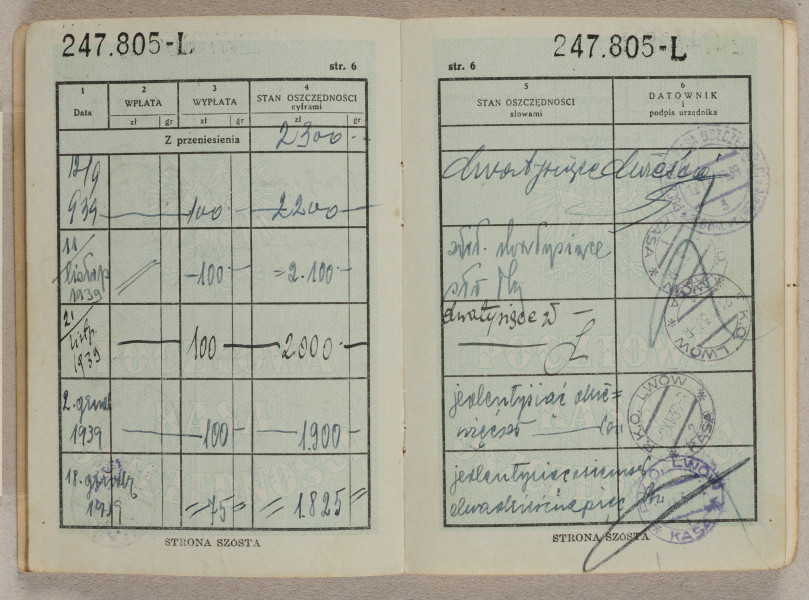 247.805-L
str. 6
1 2 3 4
Data WPŁATA WYPŁATA STAN OSZCZĘDNOŚCI
cyframi
zł gr zł gr zł gr
Z przeniesienia 2300
12/9
939 100 2200
11/
listop
1939 100 = 2.100
21/
listp.
1939 100 2000
2. grud
1939 100 1.900
18. grudz
1939 = 75 = = 1.825 =
STRONA SZÓSTA
247.805-L
str. 6
5 6
STAN OSZCZĘDNOŚCI DATOWNIK
słowami i
podpis urzędnika
dwa tysiące dwieście
zł dwa tysiące
sto
dwa tysiące zł
jedentysiąć dzie=
więćset
jedentysiącosiemset
dwadzieściapięć
P.K.O. LWÓW KASA
P.K.O. LWÓW KASA
P.K.O. LWÓW KASA
STRONA SZÓSTA